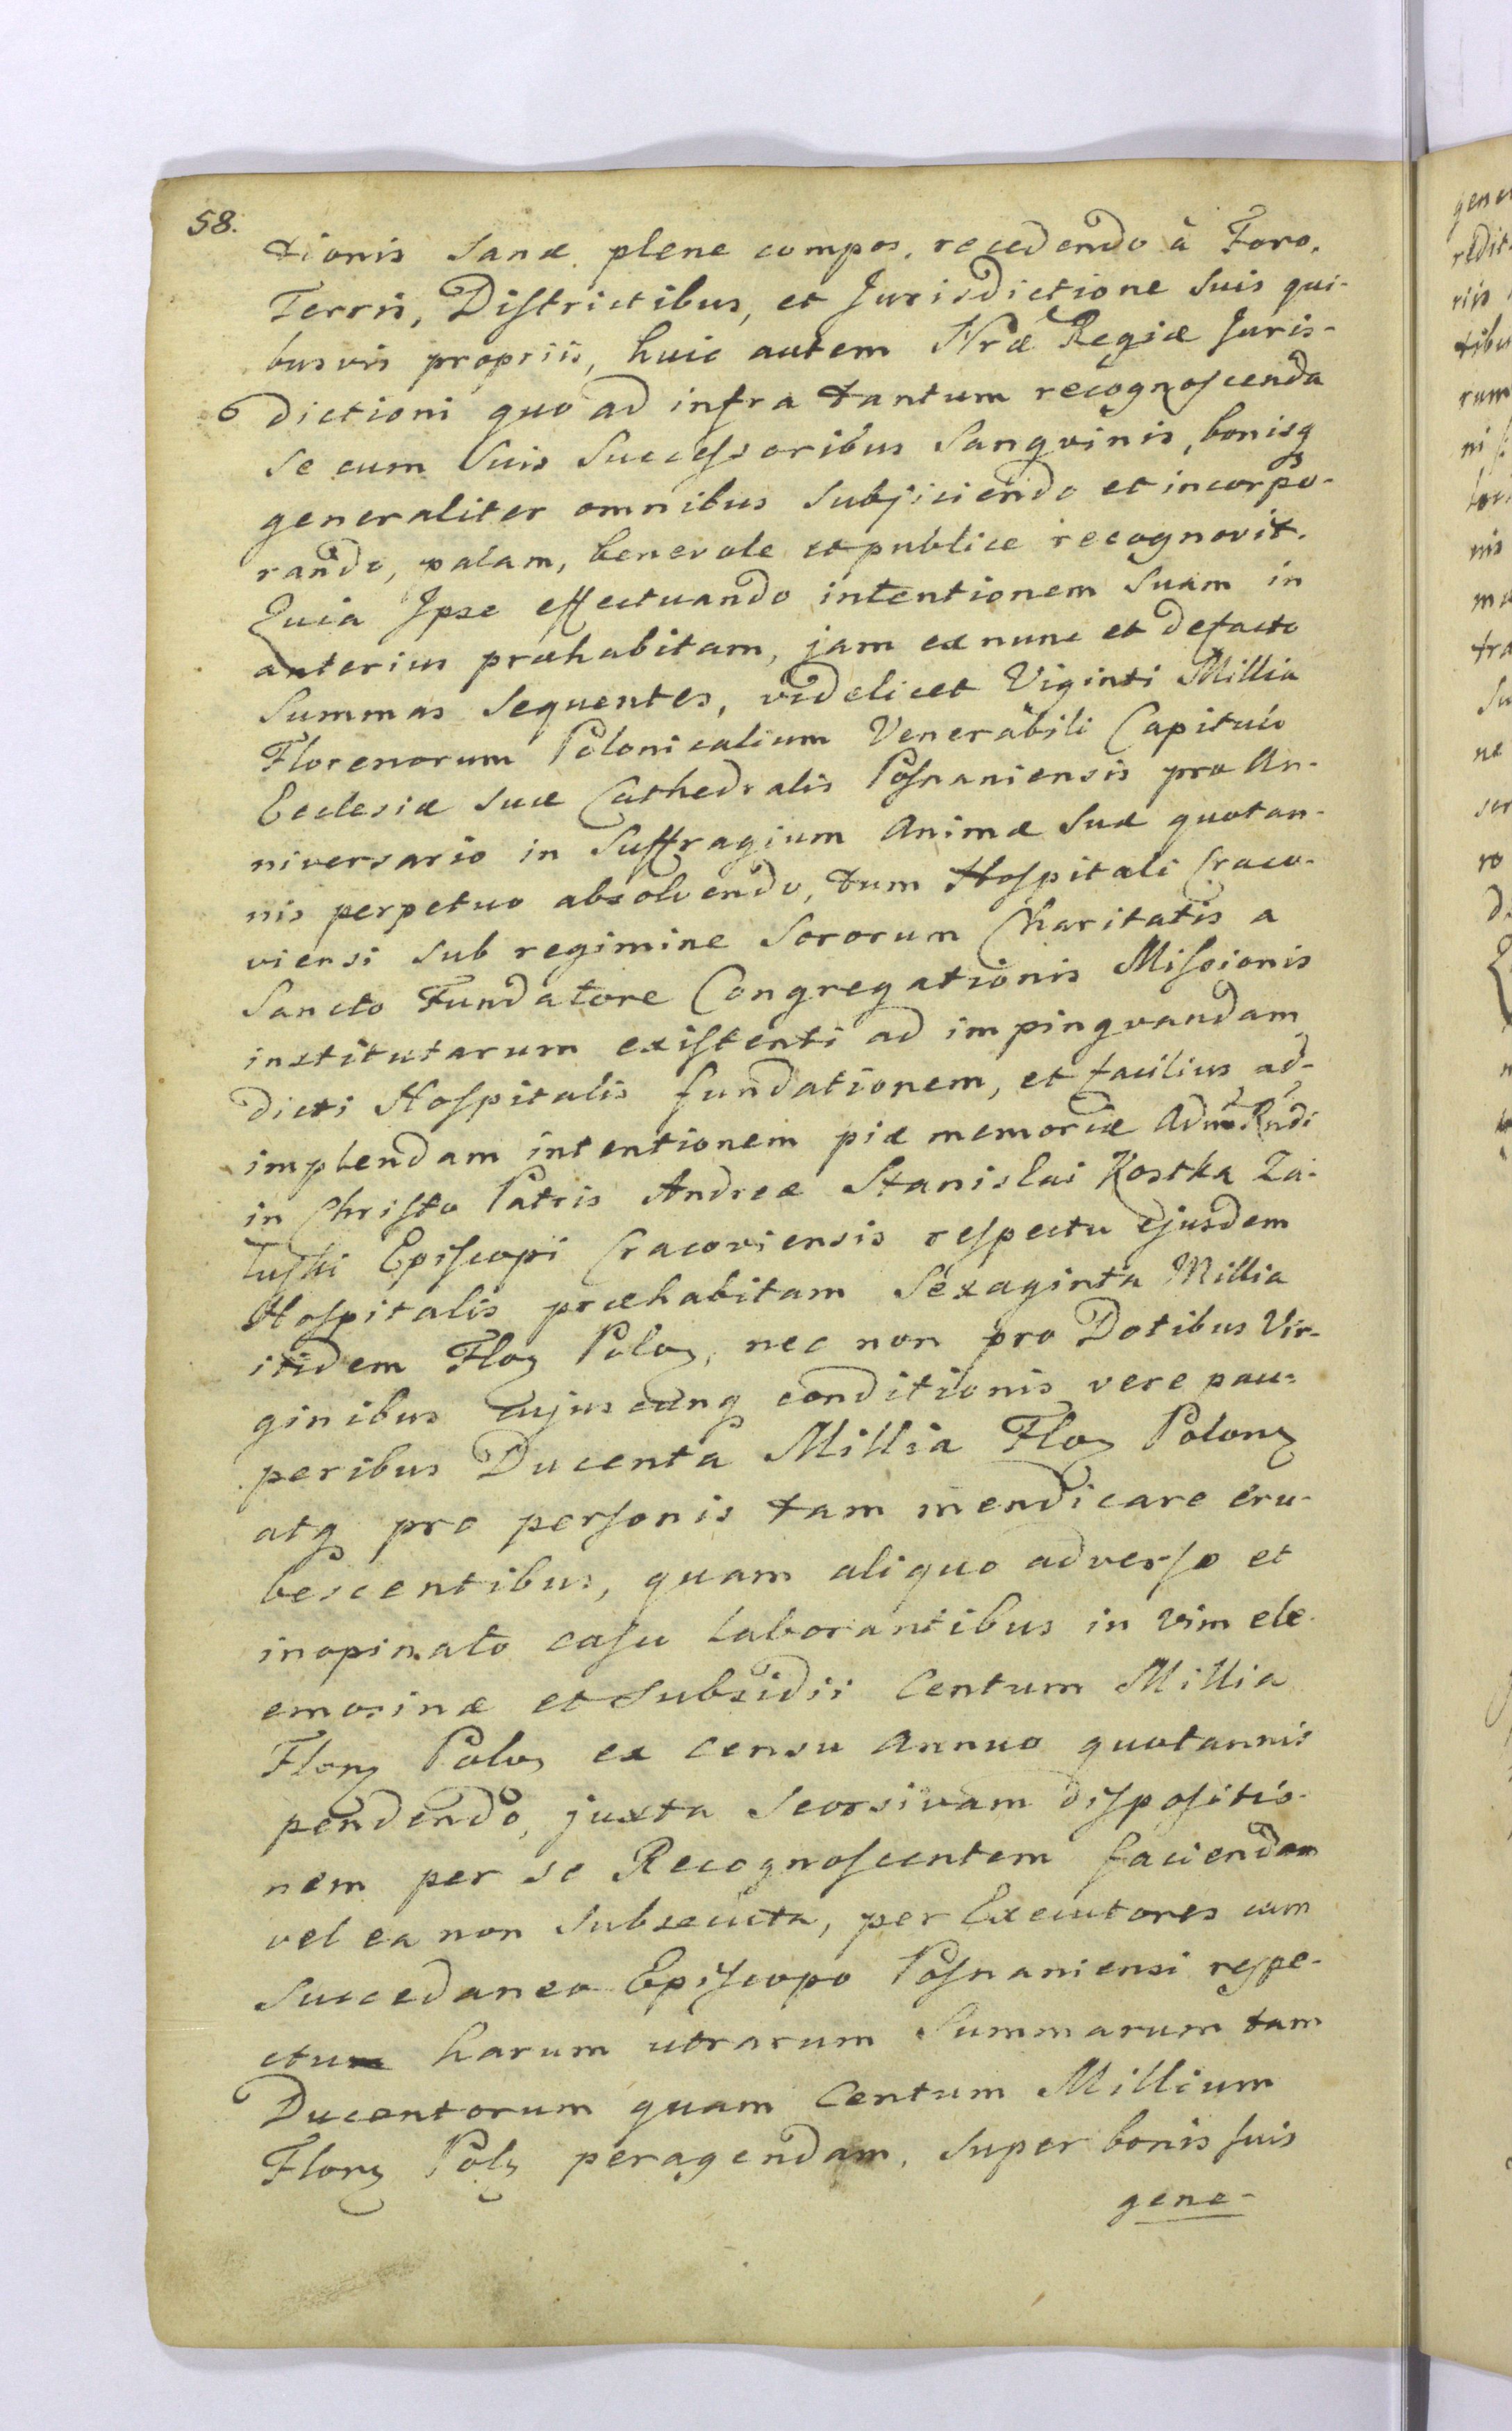 58.
tionis sanæ plene compos, recedendo à Foro,
Terris, Districtibus, et Jurisdictione suis qui-
busvis propriis, huic autem Nræ Regiæ Juris-
dictioni quo ad infra tantum recognoscenda
se cum suis Successoribus Sangvinis, bonisq
generaliter omnibus subjiciendo et incorpo-
rando, palam, benevole et publice recognovit.
Quia Ipse effectuando intentionem suam in
anterius præhabitam, jam ex nunc et de facto
Summas sequentes, videlicet Viginti Millia
Florenorum Polonicalium Venerabili Capitulo
Ecclesiæ suæ Cathedralis Posnaniensis pro An-
niversario in Suffragium Animæ suæ quotan-
nis perpetuo absolvendo, tum Hospitali Craco-
viensi sub regimine Sororum Charitatis a
Sancto Fundatore Congregationis Missionis
institutarum existenti ad impingvandam
dicti Hospitalis fundationem, et facilius ad-
implendam intentionem piæ memoriæ Adm Rndi
in Christo Patris Andreæ Stanislai Kostka Za-
luski Episcopi Cracoviensis respectu ejusdem
Hospitalis præhabitam Sexaginta Millia
itidem Flor Polon, nec non pro Dotibus Vir-
ginibus cujuscunq conditionis vere pau-
peribus Ducenta Millia Flor Polon
atq pro personis tam mendicare eru-
bescentibus, quam aliquo adverso et
inopinato casu laborantibus in vim ele-
emosinæ et subsidii Centum Millia
Flor Polon ex Censu Annuo quotannis
pendendo, juxta Seorsivam dispositio-
nem per se Recognoscentem faciendam
vel ea non subsecuta, per Executores cum
Succedaneo Episcopo Posnaniensi respe-
ctu harum utrarum Summarum tam
Ducentorum quam Centum Millium
Flor Pol peragendam, super bonis suis
gene-